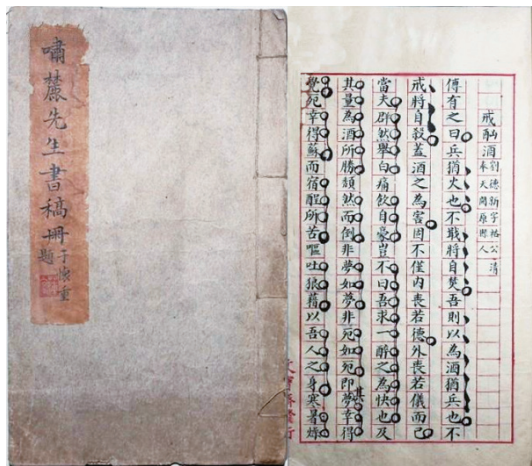 嘯麓先生書稿冊
題
戒酗酒
劉德新字裕公清
奉天開原縣人
傳有之曰兵猶火也不戢將自焚吾則以為酒猶兵也不
戒將自殺蓋酒之為害固不僅內喪若德外喪若儀而已
當夫群然舉白痛飲自豪豈不曰吾求一醉之為快也及
其量為酒所勝頹然而倒非夢如夢非死如死即夢幸得
覺死幸得蘇而宿酲所苦嘔吐狼藉以吾人之身寒暑燥